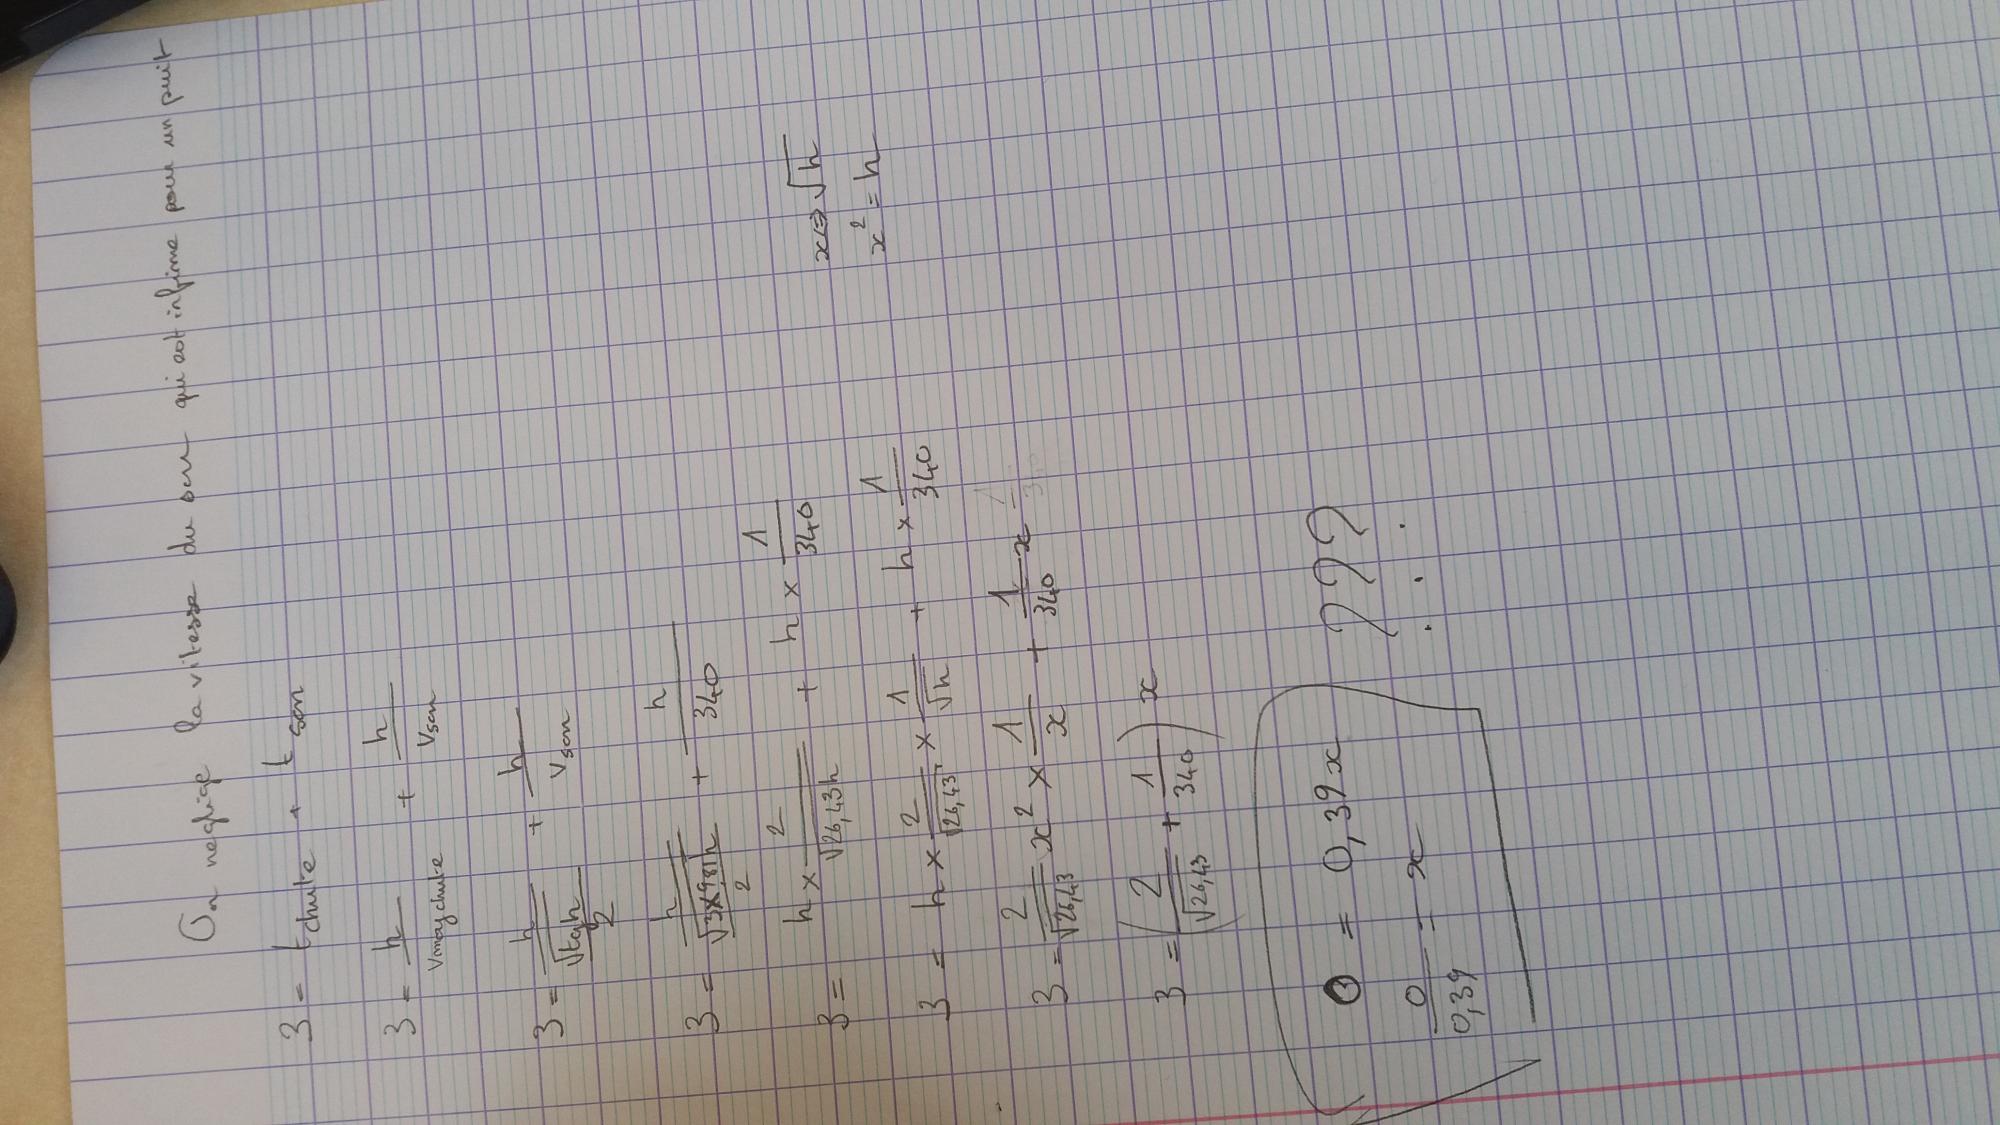 On neglige la vitesse du son qui est infime pour un puit
3 = t chute + t son
3 = h/Vmoychute + h/Vson
3 = h/(√(tgh)/2) + h/Vson
3 = h/(√(3×9,81h)/2) + h/340
3 = h × 2/√(26,43h) + h × 1/340
x ⇔ √h
x² = h
3 = h × 2/√26,43 × 1/√h + h × 1/340
3 = 2/√26,43 x² × 1/x + 1/340 x
3 = (2/√26,43 + 1/340) x
0 = 0,39x ???
0/0,39 = x